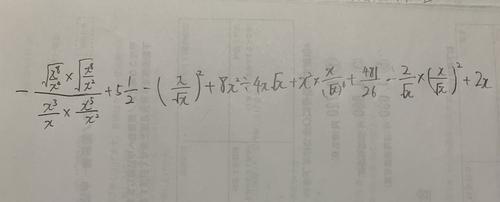 $-\frac{\sqrt{\frac{x^8}{x^4}} \times \sqrt{\frac{x^8}{x^2}}}{\frac{x^3}{x} \times \frac{x^3}{x^2}} + 5\frac{1}{2} - \left(\frac{x}{\sqrt{x}}\right)^2 + 8x^2 \div 4x\sqrt{x} + x^2 \times \frac{x}{(\sqrt{x})^6} + \frac{481}{26} - \frac{2}{\sqrt{x}} \times \left(\frac{x}{\sqrt{x}}\right)^2 + 2x$